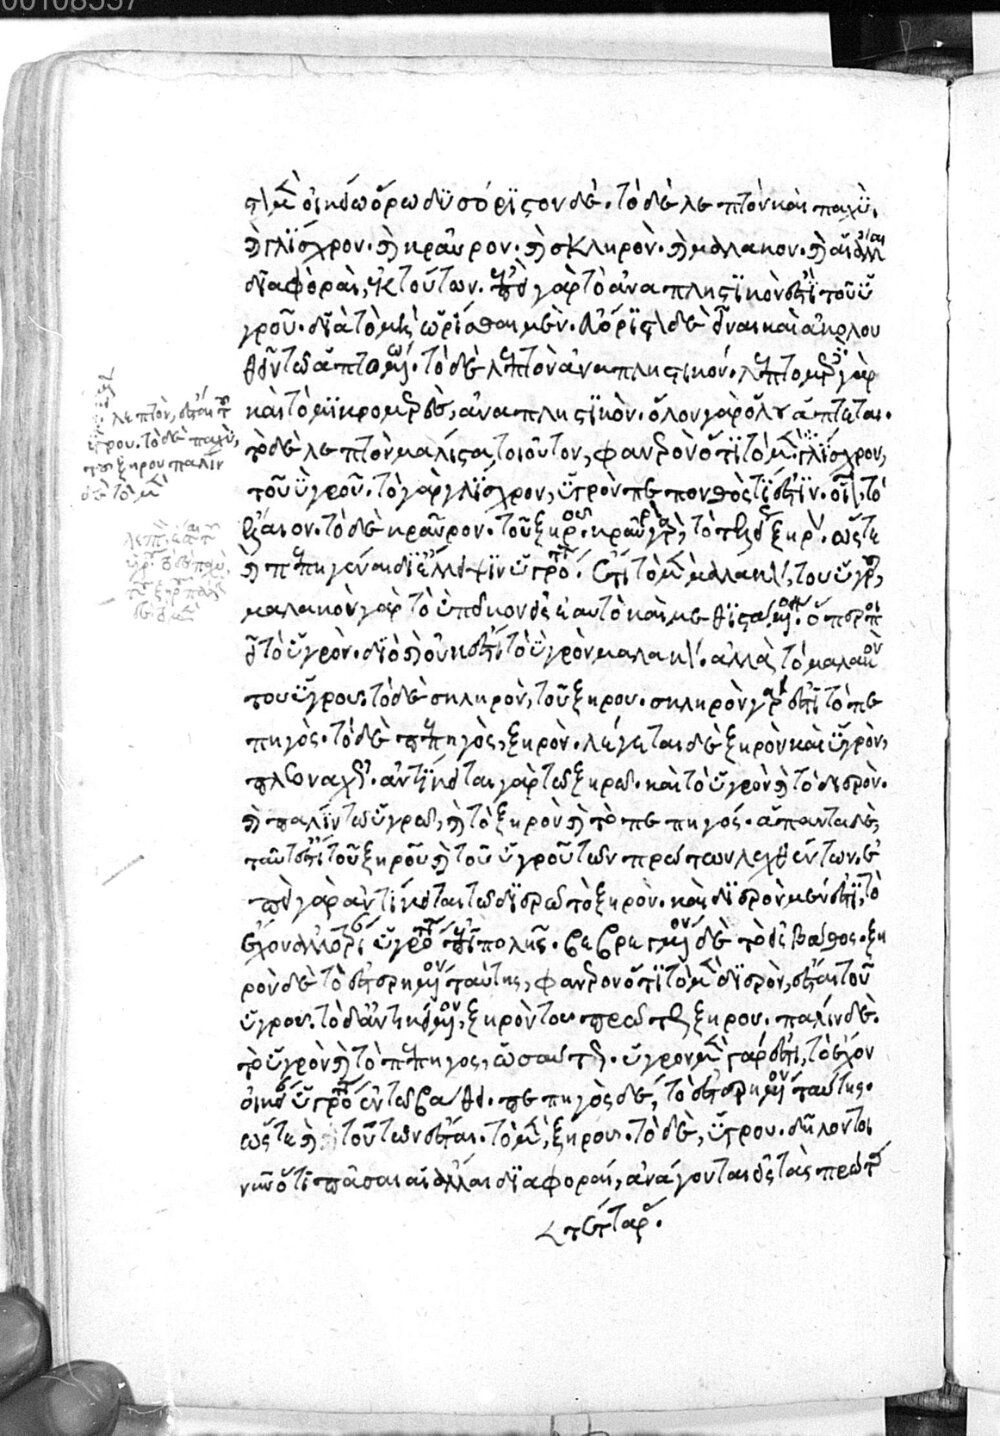 00108557
στον μὲν οἰκείω ὅρω δυσόριστον δέ. τὸ δὲ λεπτὸν καὶ παχὺ,
ἢ γλίσχρον. ἢ κραῦρον. ἢ σκληρὸν. ἢ μαλακον. ἢ αἱ ἄλλαι
διαφοραὶ, ἐκ τούτων. ἐπεὶ γὰρ τὸ ἀναπληστικὸν ἐστὶ τοῦ ὑ
γροῦ. διὰ τὸ μὴ ὡρίσθαι μὲν. εὐόριστον δὲ εἶναι καὶ ἀκολου
θεῖν τῶ ἁπτομένω. τὸ δὲ λεπτὸν ἀναπληστικόν. λεπτομερὲς γὰρ
καὶ τὸ μικρομερὲς, ἀναπληστικὸν. ὅλον γὰρ ὅλου ἅπτεται.
τὸ δὲ λεπτὸν μάλιστα τοιοῦτον, φανερὸν ὅτι τὸ μὲν γλίσχρον,
τοῦ ὑγροῦ. τὸ γὰρ γλίσχρον, ὑγρὸν πεπονθός τι ἐστὶν. οἷον τὸ
ἔλαιον. τὸ δὲ κραῦρον. τοῦ ξηροῦ. κραῦρον γὰρ, τὸ τελέως ξηρόν. ὥστε
ἢ πεπηγέναι δι' ἔλλειψιν ὑγρότητος. ἔτι τὸ μὲν μαλακὸν, του ὑγροῦ,
μαλακὸν γὰρ τὸ ὑπεῖκον εἰς ἑαυτὸ καὶ μεθιστάμενον. ὅπερ ποι
εῖ τὸ ὑγρὸν. διὸ ἢ οὐκ ἐστὶ τὸ ὑγρὸν μαλακὸν. ἀλλὰ τὸ μαλακὸν
του ὑγρου. τὸ δὲ σκληρὸν, τοῦ ξηρου. σκληρὸν γάρ ἐστι τὸ πε
πηγὸς. τὸ δὲ πεπηγὸς, ξηρὸν. λέγεται δὲ ξηρὸν καὶ ὑγρὸν,
πλεοναχῶς. ἀντίκειται γὰρ τῶ ξηρῶ. καὶ τὸ ὑγρὸν ἢ τὸ διερὸν.
ἢ παλίν τῶ ὑγρῶ, ἢ τὸ ξηρὸν ἢ τὸ πεπηγός. ἅπαντα δὲ,
ταῦτ' ἐστὶ τοῦ ξηροῦ ἢ τοῦ ὑγροῦ τῶν πρώτων λεχθέντων. ἐ
πεὶ γὰρ ἀντίκειται τῶ διερῶ τὸ ξηρὸν. καὶ διερὸν μέν ἐστι, τὸ
ἔχον ἀλλοτρίαν ὑγρότητα ἐπιπολῆς. βεβρεγμένον δὲ τὸ εἰς βάθος. ξη
ρὸν δὲ τὸ ἐστερημένον ταύτης, φανερὸν ὅτι τὸ μὲν διερὸν, ἔσται τοῦ
ὑγρου. τὸ δ' ἀντικείμενον, ξηρὸν του πρώτως ξηρου. παλίν δὲ.
τὸ ὑγρὸν ἢ τὸ πεπηγος, ὡσαύτως. ὑγρον μὲν γάρ ἐστι, τὸ ἔχον
οἰκείαν ὑγρότητα ἐν τῶ βάθει. πεπηγὸς δέ, τὸ ἐστερημένον ταύτης.
ὥστε ἢ τοῦτων ἔσται. τὸ μὲν, ξηρου. τὸ δὲ, ὑγρου. δῆλον τοί
νυν ὅτι πᾶσαι αἱ ἄλλαι διαφοραὶ, ἀνάγονται εἰς τὰς πρώτας
τέτταρας.
λεπτὸν, ἔσται τοῦ
ὑγρου. τὸ δὲ παχὺ,
του ξηρου παλίν
δὲ τὸ μὲν